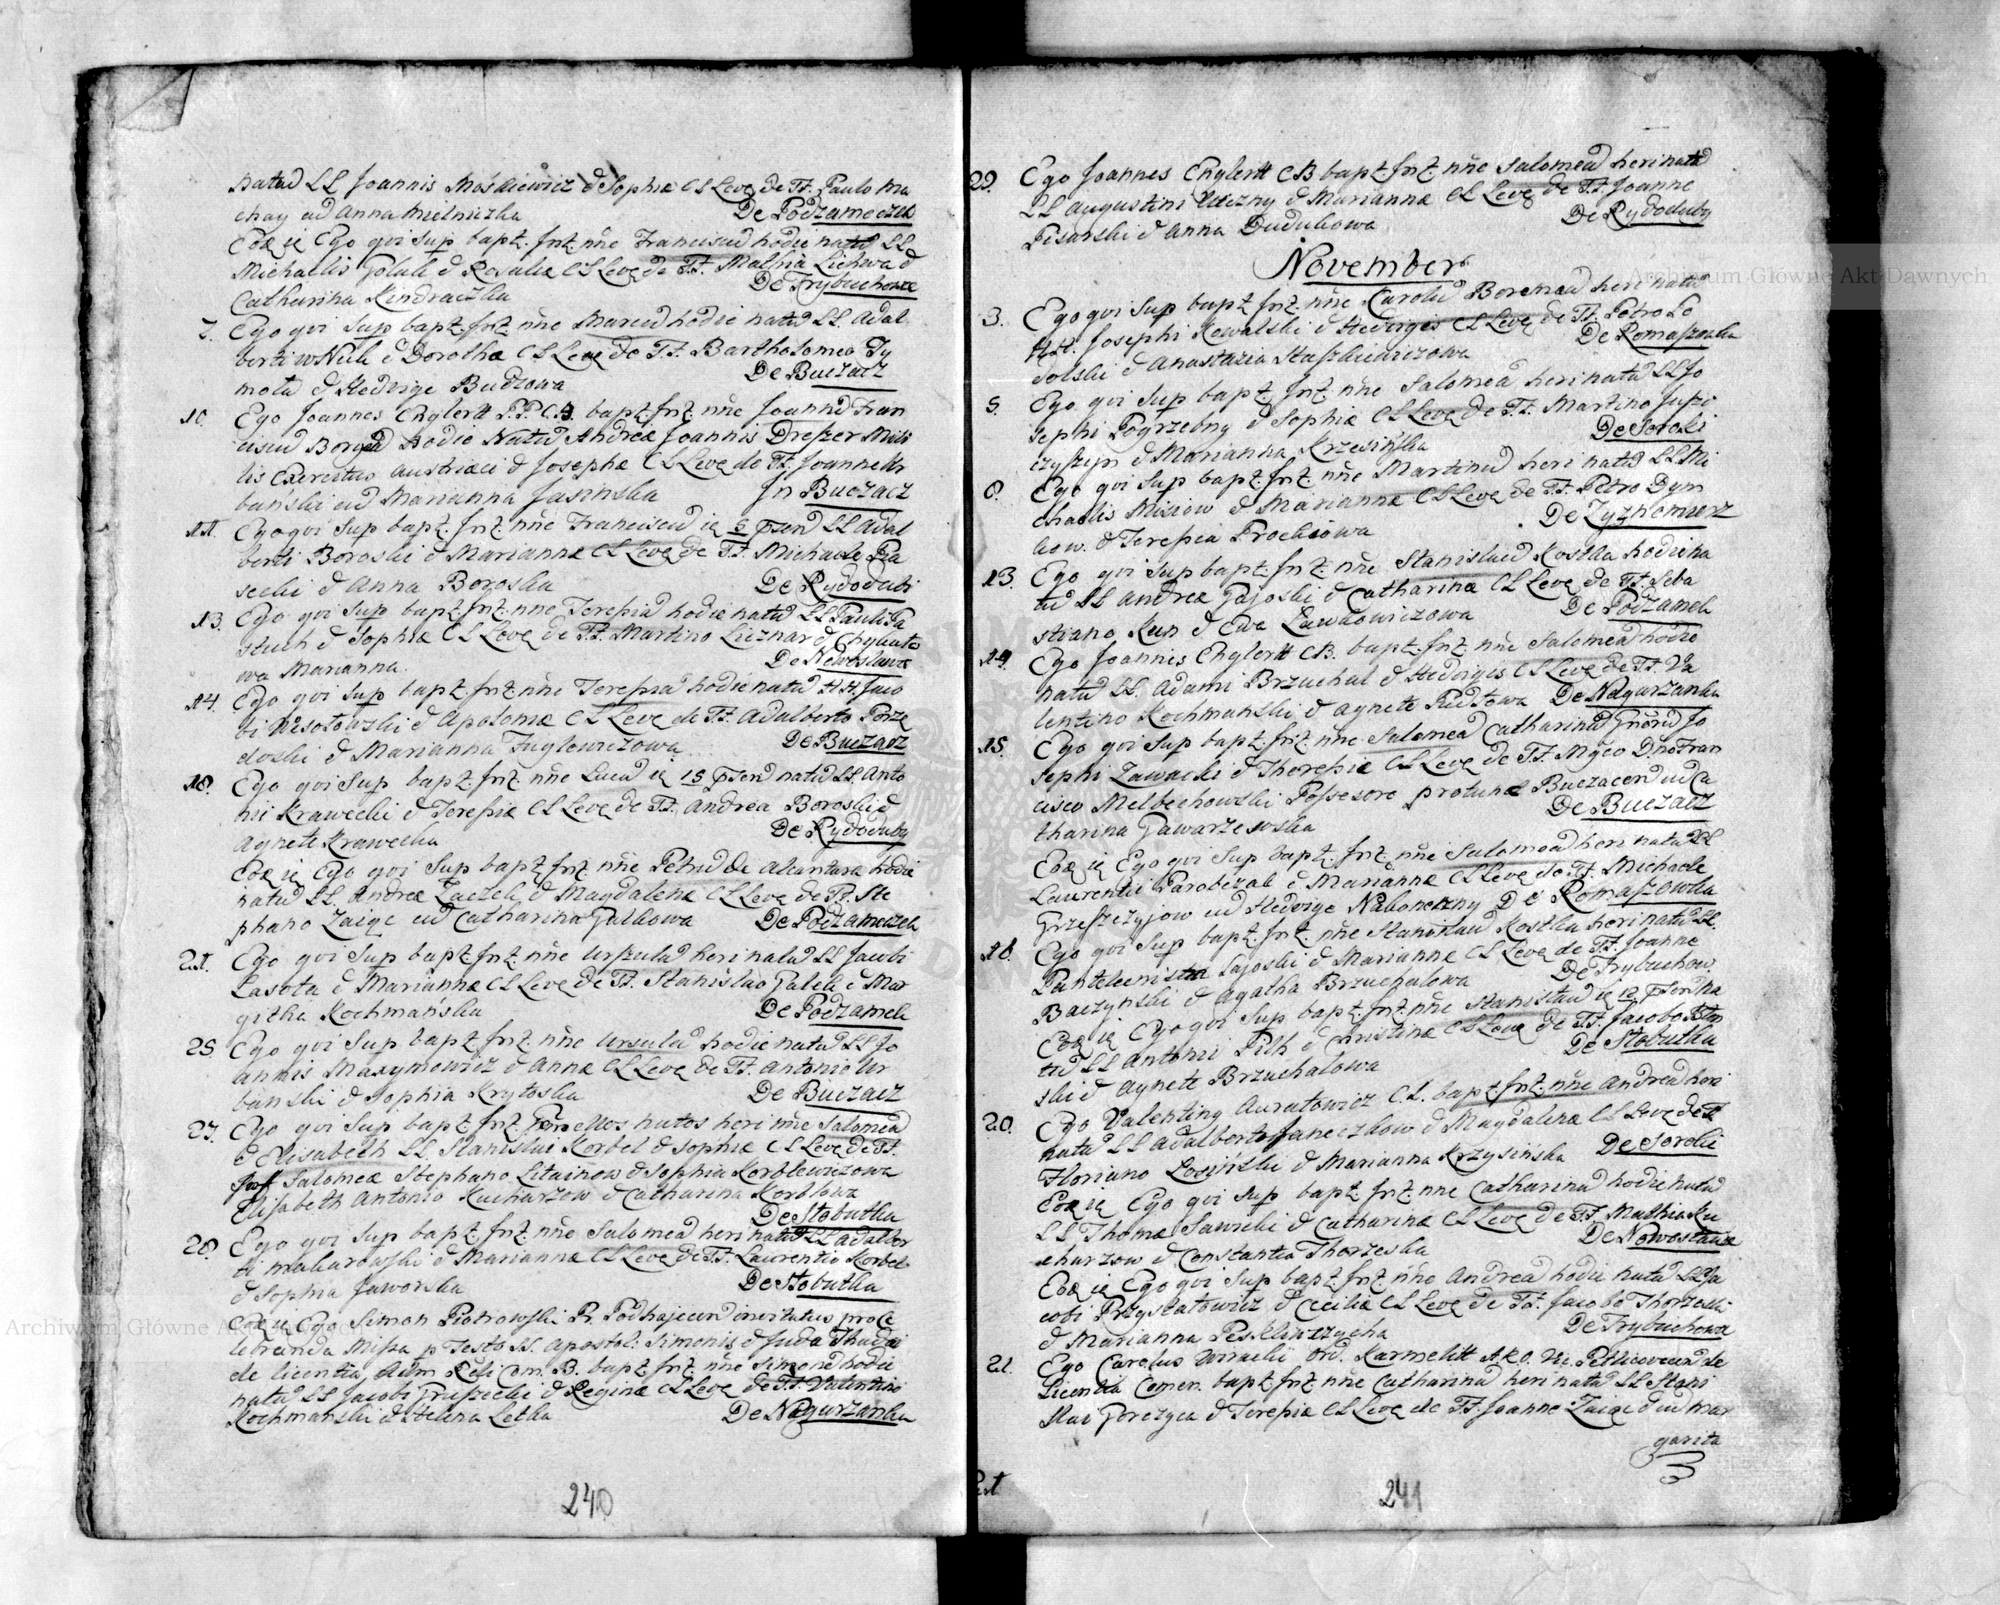 natũ LL Joannis Moskiewicz & Sophiæ CLLeve de TT. Paulo Ma
chay cũ Anna Mielniczka De Podzameczek
Eoď ię Ego qvi sup bapt. fnt. nñe Franciscũ hodie natũ LL
Michaelis Golak & Rosaliæ CLLevę de TT. Mathia Lichwa &
Catharina Kindraczka De Trybuchowce
7. Ego qvi sup bapt. fnt. nñe Marcũ hodie natũ LL. Adal
berti wNuk & Dorothæ CLLevę de TT. Bartholomeo Ty
mota & Hedvige Budzowa De Buczacz
10. Ego Joannes Englertt P.P. C.B. bapt. fnt. nñe Joannẽ Fran
ciscũ Borgiã hodie Natũ Andreæ Joannis Dreszer Mili
tis Exercitus Austriaci & Josephæ CLLevę de TT. Joanne Ur
bański cũ Marianna Jasinska Jn Buczacz
11. Ego qvi sup bapt. fnt. nñe Franciscũ ię 5 pseñ LL Adal
berti Boroski & Mariannæ CLLevę de TT. Michaele Pia
secki & Anna Boroska De Rydoduby
13. Ego qvi sup bapt. fnt. nñe Teresiã hodie natã LL Pauli Pa
stuch & Sophiæ CLLevę de TT. Martino Licznar & Chyluto
wa Marianna. De Nowostawce
14. Ego qvi sup bapt. fnt. nñe Teresiã hodie natã HH. Jaco
bi Wisotowski & Apoloniæ CLLevę de TT. Adalberto Porzę
doski & Marianna Juglewiczowa De Buczacz
18. Ego qvi sup bapt. fnt. nñe Lucã ię 15 pseñ natũ LL Anto
nii Krawecki & Teresiæ CLLevę de TT. Andrea Boroski &
Agnete Krawecka De Rydoduby
Eoď ię Ego qvi sup bapt. fnt. nñe Petrũ de Alcantara hodie
natũ LL. Andreæ Zaczek & Magdalenæ CLLevę de TT. Ste
phano Zaigę cũ Catharina Galkowa De Podzameczek
21. Ego qvi sup bapt. fnt. nñe Urszulã heri natã LL Jacobi
Lasota & Mariannæ CLLevę de TT. Stanislao Galek & Mar
githa Kochmańska De Podzamek
25. Ego qvi sup bapt. fnt. nñe Ursulã hodie natã LL Jo
annis Maxymowicz & Annæ CLLevę de TT. Antonio Ur
banski & Sophia Krytoska De Buczacz
27. Ego qvi sup bapt. fnt. Gemellos natos heri nñe Salomeã
& Elisabeth LL. Stanislai Korbel & Sophiæ CLLevę de TT.
Salomeæ Stephano Litainow & Sophia Korblewiczowa
Elisabeth Antonio Kucharzow & Catharina Korblowa
De Stobutka
28. Ego qvi sup bapt. fnt. nñe Salomeã heri natã LL Adalber
ti Makarowski & Mariannæ CLLevę de TT. Laurentio Korbel
& Sophia Jaworska De Stobutka
Eoď ię Ego Simon Piotrowski Pr. Podhajecen invitatus pro ce
lebranda Missa p Festo SS. Apostol: Simonis & Juda Thadæi
de licentia Adm Rñdi Com. B. bapt. fnt. nñe Simonẽ hodie
natũ LL Jacobi Gruszecki & Reginæ CLLevę de TT. Valentino
Kochmanski & Helena Letka De Nagurzanka
240
29. Ego Joannes Englertt CB bapt. fnt. nñe Salomeã heri natã
LL Augustini Uliczny & Mariannæ CLLevę de TT. Joanne
Pisarski & Anna Dudukowa De Rydoduby
November
3. Ego qvi sup bapt. fnt. nñe Carolũ Boromeũ heri natũ
HH. Josephi Kowalski & Hedvigis CLLevę de TT. Petro Po
dolski & Anastazia Staszkiewiczowa De Romaszowka
5. Ego qvi sup bapt. fnt. nñe Salomeã heri natã LL Jo
sephi Pogrzebny & Sophiæ CLLevę de TT. Martino Juzi
czyszyn & Marianna Krzesińska De Soroki
6. Ego qvi sup bapt. fnt. nñe Martinũ heri natũ LL Mi
chaelis Misiow & Mariannæ CLLevę de TT. Petro Dym
kow. & Teresia Prockowa De Zyznomierz
13. Ego qvi sup bapt. fnt. nñe Stanislaũ Kostka hodie na
tũ LL Andreæ Gajoski & Catharinæ CLLevę de TT. Seba
stiano Kun & Eva Lawkowiczowa De Podzamek
14. Ego Joannis Englertt CB. bapt. fnt. nñe Salomeã hodie
natã LL. Adami Brzuchal & Hedvigis CLLevę de TT. Va
lentino Kochmanski & Agnete Rudtowa De Nagurzanka
15. Ego qvi sup bapt. fnt. nñe Salomeã Catharinã Gñorũ Jo
sephi Zawacki & Theresiæ CLLevę de TT. Mgco Dño Fran
cisco Melbechowski Possesore protunc Buczacen cũ Ca
tharina Gawarzewska De Buczacz
Eoď ię Ego qvi sup bapt. fnt. nñe Salomeã heri natã LL
Laurentii Parobczak & Mariannæ CLLevę de TT. Michaele
Grzeszczyjow cũ Hedvige Nabonczny De Romaszowka
16. Ego qvi sup bapt. fnt. nñe Stanislaũ Kostka heri natũ LL.
Panteleonis Sajoski & Mariannæ CLLevę de TT. Joanne
Baczyński & Agatha Brzuchalowa De Trybuchow.
Eoď ię Ego qvi sup bapt. fnt. nñe Stanislaũ ię 12 pseñ na
tũ LL Antonii Pilh & Christinæ CLLevę de TT. Jacobo
ski & Agnete Brzuchalowa De Stobutka
20. Ego Valentinq Auratowicz C.L. bapt. fnt. nñe Andreã heri
natũ LL Adalberto Janeczkow & Magdalenæ CLLevę de TT
Floriano Losiński & Marianna Krzysińska De Soroki
Eoď ię Ego qvi sup bapt. fnt. nñe Catharinã hodie natã
LL Thomæ Sawicki & Catharinæ CLLevę de TT. Mathia Ku
charzow & Constantia Thorzeska De Nowostawce
Eoď ię Ego qvi sup bapt. fnt. nñe Andreã hodie natũ LL Ja
cobi Przystatowicz & Cecilia CLLevę de TT. Jacobo Thorzeski
& Marianna Peskliwczycha De Trybuchowce
21. Ego Carolus Ord. Karmelitt de
Licentia Comen. bapt. fnt. nñe Catharinã heri natã LL Stani
slai Gorczyca & Teresiæ CLLevę de TT. Joanne Zaigę & cũ Mar
garita
241